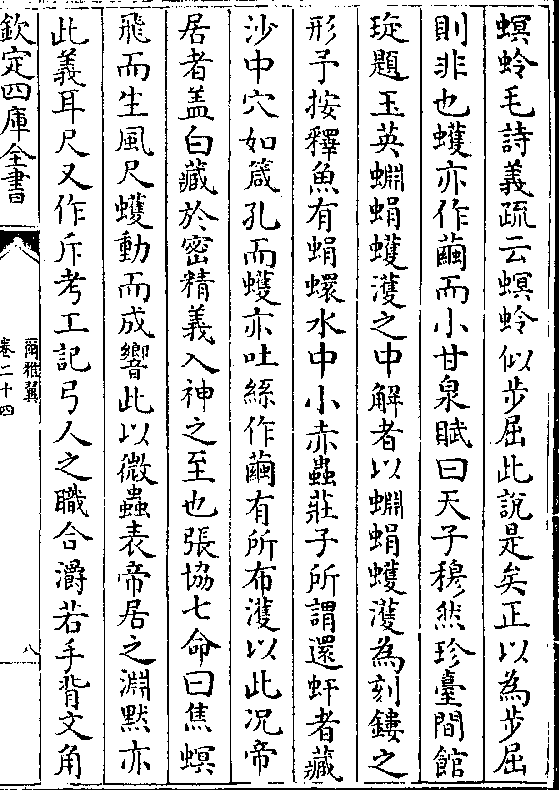 螟蛉毛詩義疏云螟蛉似步屈此說是矣正以為步屈
則非也蠖亦作繭而小甘泉賦曰天子穆然珍臺間館
琁題玉英蜵蜎蠖濩之中解者以蜵蜎蠖濩為刻鏤之
形予按釋魚有蜎蠉水中小赤蟲莊子所謂還虷者藏
沙中穴如箴孔而蠖亦吐絲作繭有所布濩以此况帝
居者盖白藏於密精義入神之至也張協七命曰焦螟
飛而生風尺蠖動而成響此以微蟲表帝居之淵默亦
此義耳尺又作斥考工記弓人之職合灂若手背文角
欽定四庫全書
爾雅翼
卷二十四
八